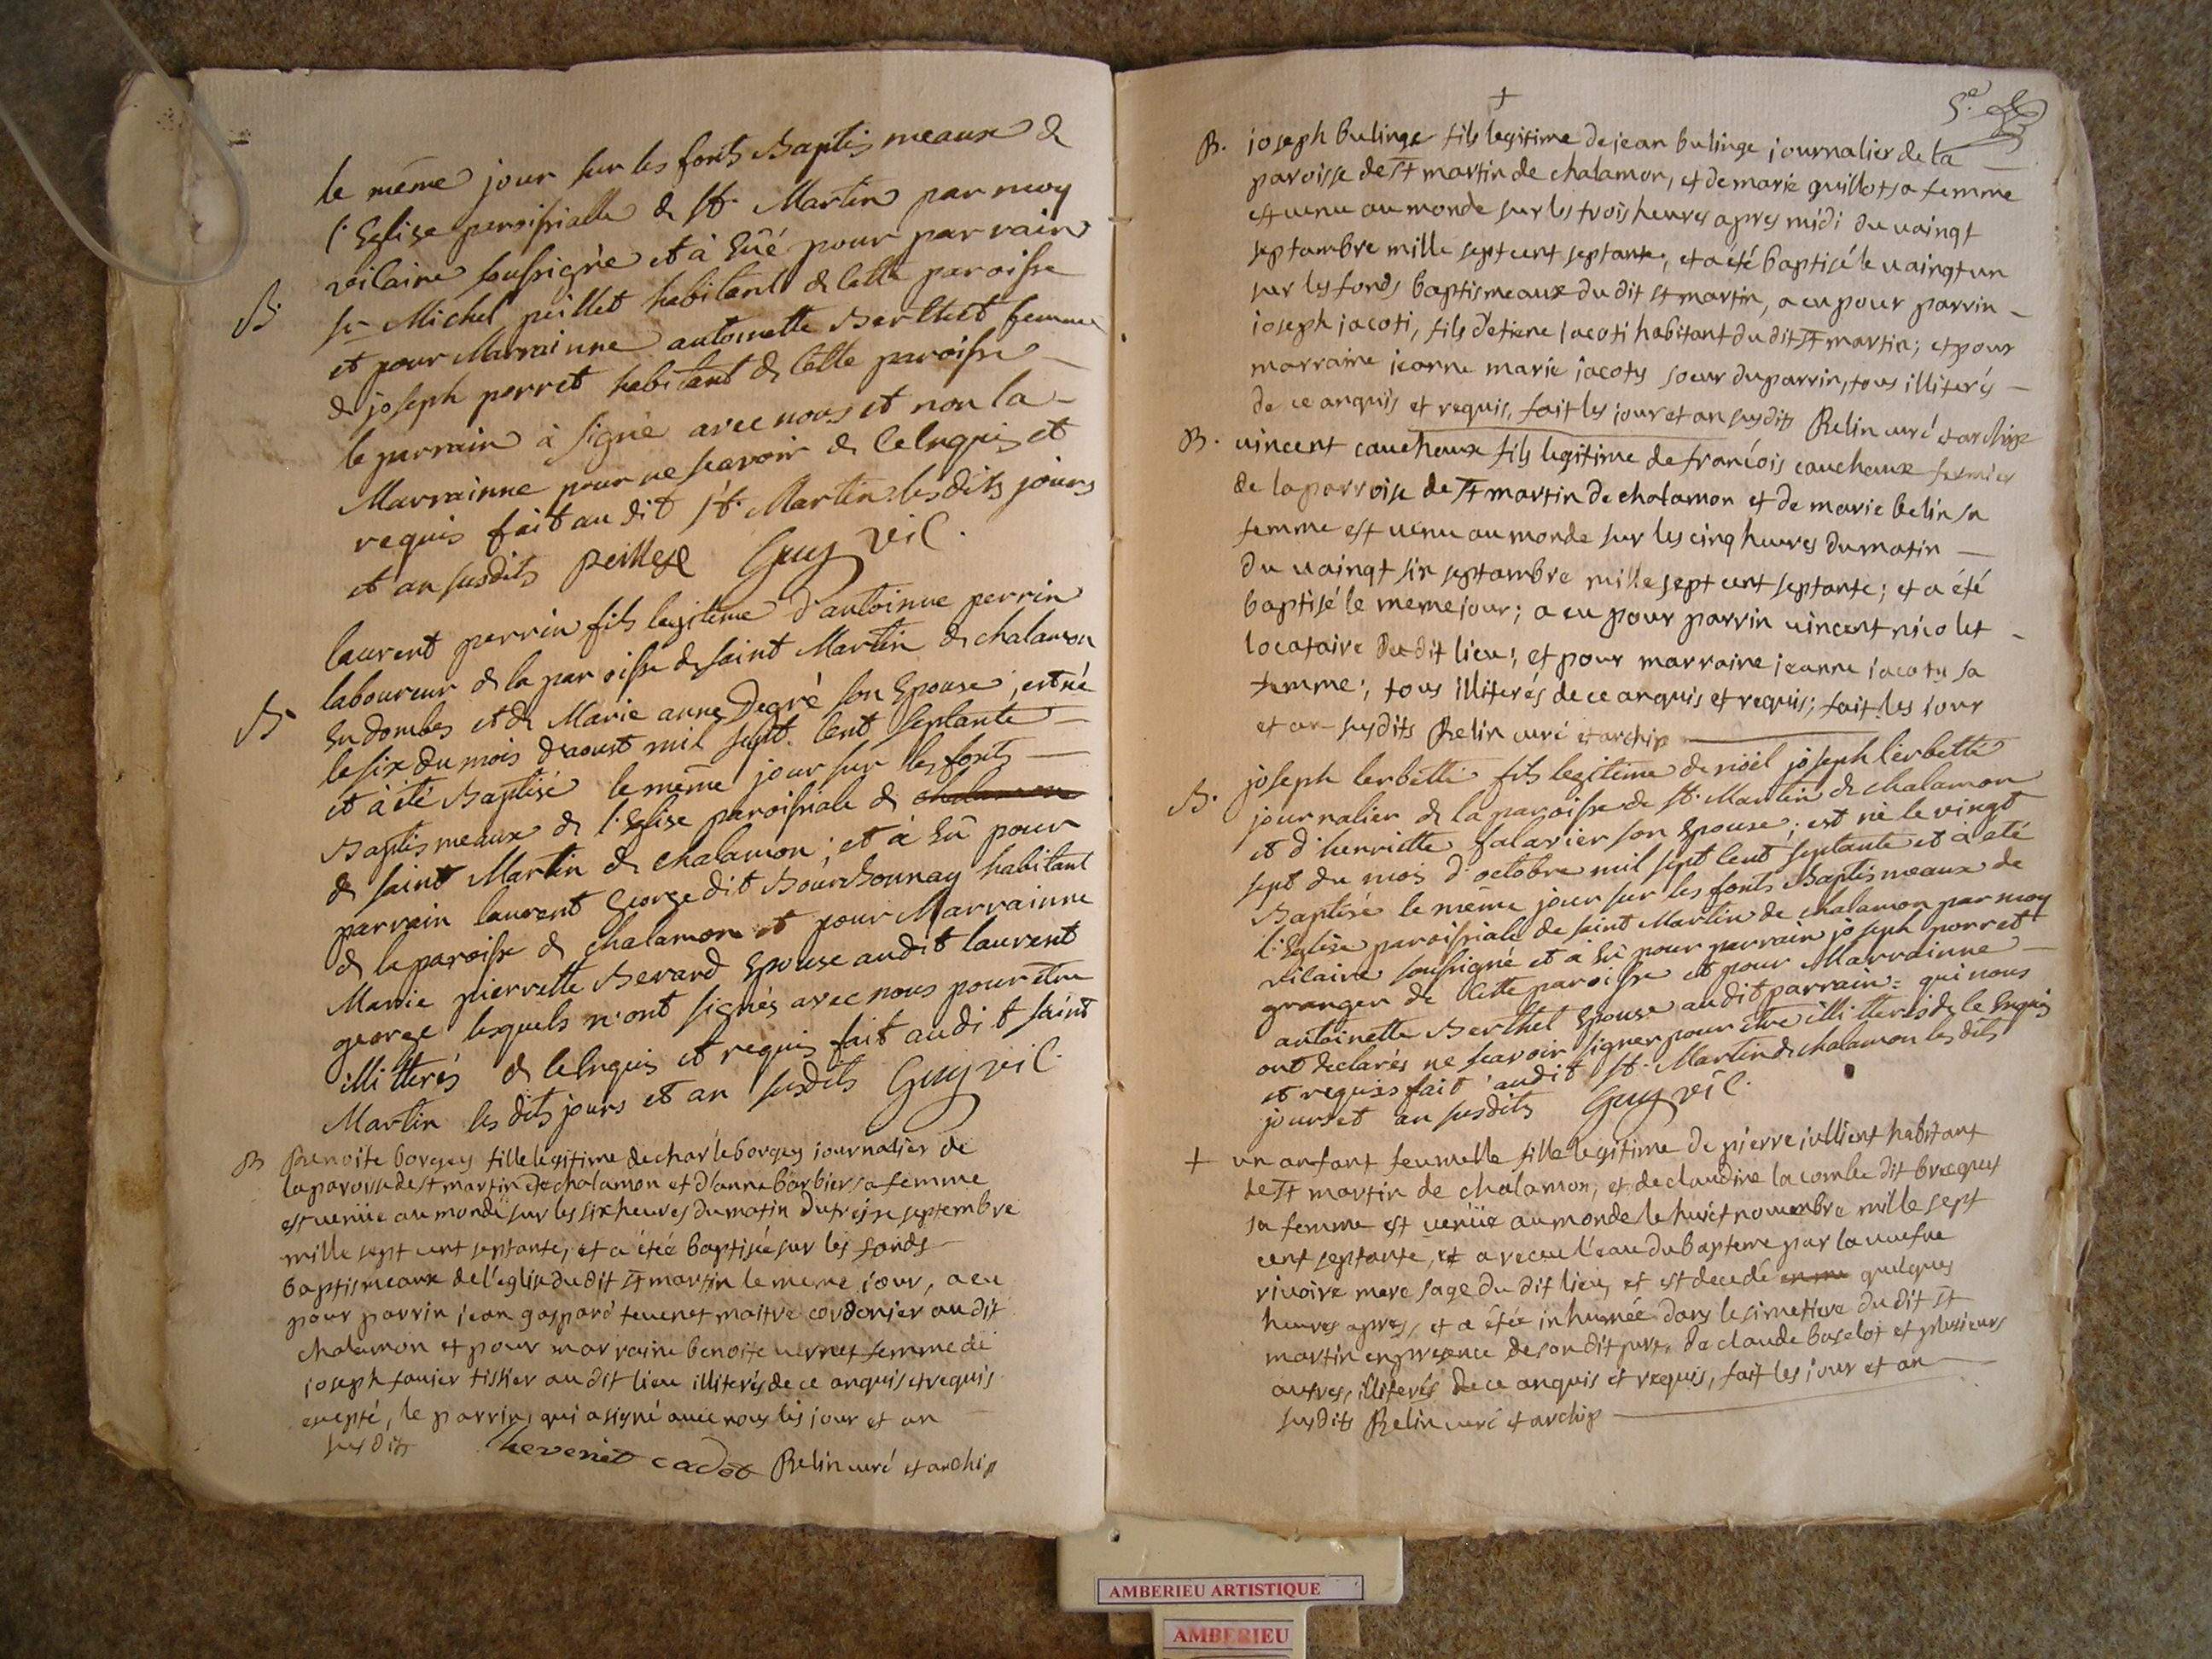 le même jour sur les fonts Baptismeaux de
l'Eglise paroissialle de St. Martin par moy
vilaire soussigné et à Eüé pour parrain
B. sr Michel peillet habitant de cette paroisse
et pour Marrainne antoinette Berthet femme
de joseph perret habitant de cette paroisse
le parrain à signé avec nous et non la
Marrainne pour ne scavoir de ce Enquis et
requis fait au dit St. Martin les dits jours
et an susdits peillet Guy vic.
laurent perrin fils legitime d'antoinne perrin
laboureur de la paroisse de saint Martin de chalamon
B En dombes et de Marie anne Degré son Epouse, est né
le six du mois d'aoust mil sept cent septante
et à été Baptisé le même jour sur les fonts
Baptismeaux de l'Eglise paroissiale de chalamon
de saint Martin de chalamon, et à Eû pour
parrain laurent George dit Bourbonnay habitant
de la paroisse de chalamon et pour Marrainne
Marie pierrette Berard Epouse audit laurent
george lesquels n'ont signés avec nous pour être
illitterés de ce Enquis et requis fait audit saint
Martin les dits jours et an susdits Guy vic.
B Benoite borgey fille légitime de charle borgey journalier de
la paroisse de st martin de chalamon et d'anne barbier sa femme
est venüe au monde sur les six heures du matin du treise septembre
mille sept cent septante, et a étée baptisée sur les fonds
baptismeaux de l'eglise du dit st martin le meme iour, a eu
pour parrin iean gaspard tevenet maitre cordonier au dit
chalamon et pour marraine benoite vernet femme de
ioseph fanier tissier au dit lieu illiterés de ce anquis et requis
exepté, le parrin, qui a signé avec nous les jour et an
susdits thevenet cadet Relin curé et archip
5e
B. ioseph bulinge fils legitime de jean bulinge journalier de la
paroisse de st martin de chalamon, et de marie guillot sa femme
est venu au monde sur les trois heures apres midi du vaingt
septambre mille sept cent septante, et a été baptisé le vaingt un
sur les fonds baptismeaux du dit st martin, a eu pour parrin
ioseph jacoti, fils d'etiene iacoti habitant du dit st martin; et pour
marraine ieanne marie jacoty soeur du parrin, tous illiterés
de ce anquis et requis, fait les iour et an susdits Relin curé et archip
B. vincent cauchoux fils legitime de francois cauchoux fermier
de la parroise de st martin de chalamon et de marie belin sa
femme est venu au monde sur les cinq heures du matin
du vaingt six septambre mille sept cent septante; et a été
baptisé le meme jour; a eu pour parrin vincent nicolet
locataire du dit lieu; et pour marraine ieanne iacoty sa
femme; tous illiterés de ce anquis et requis; fait les iour
et an susdits Relin curé et archip
B. joseph lerbette fils legitime de noël joseph lerbette
journalier de la paroisse de St. Martin de chalamon
et d'henriette salavier son Epouse, est né le vingt
sept du mois d'octobre mil sept cent septante et à été
Baptisé le même jour sur les fonts Baptismeaux de
l'Eglise paroissiale de saint Martin de chalamon par moy
vilaire soussigné et à Eû pour parrain joseph perret
granger de cette paroisse et pour Marrainne
antoinette Berthet Epouse audit parrain qui nous
ont declarés ne scavoir signer pour être illitterés de ce Enquis
et requis fait audit St. Martin de chalamon les dits
jours et an susdits Guy vic.
+ un anfant feumelle fille legitime de pierre jullient habitant
de st martin de chalamon, et de claudine lacombe dit
sa femme est venüe au monde le huict novembre mille sept
cent septante, et a receu l'eau du bapteme par la veufue
rivoire mere sage du dit lieu, et est decedé quelques
heures apres, et a étée inhumée dans le simetiere du dit st
martin en presence de son dit pere, de claude baselot et plusieurs
autres, illiterés de ce anquis et requis, fait les iour et an
susdits Relin curé et archip
AMBERIEU ARTISTIQUE
AMBERIEU